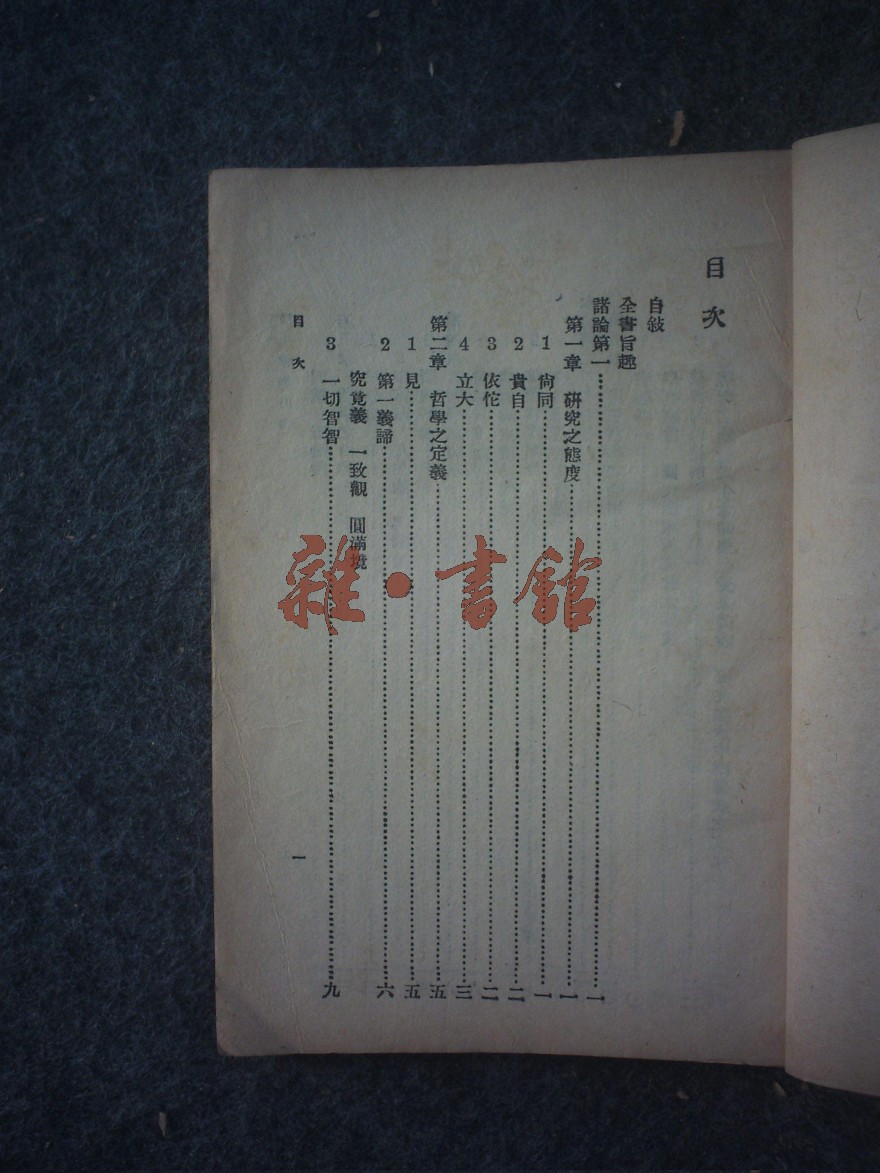 目次
自敍
全書旨趣
諸論第一……一
第一章 研究之態度……一
1 尙同……一
2 貴自……二
3 依佗……二
4 立大……三
第二章 哲學之定義……五
1 見……五
2 第一義諦……六
究竟義 一致觀 圓滿境
3 一切智智……九
目次
一
雜·書館